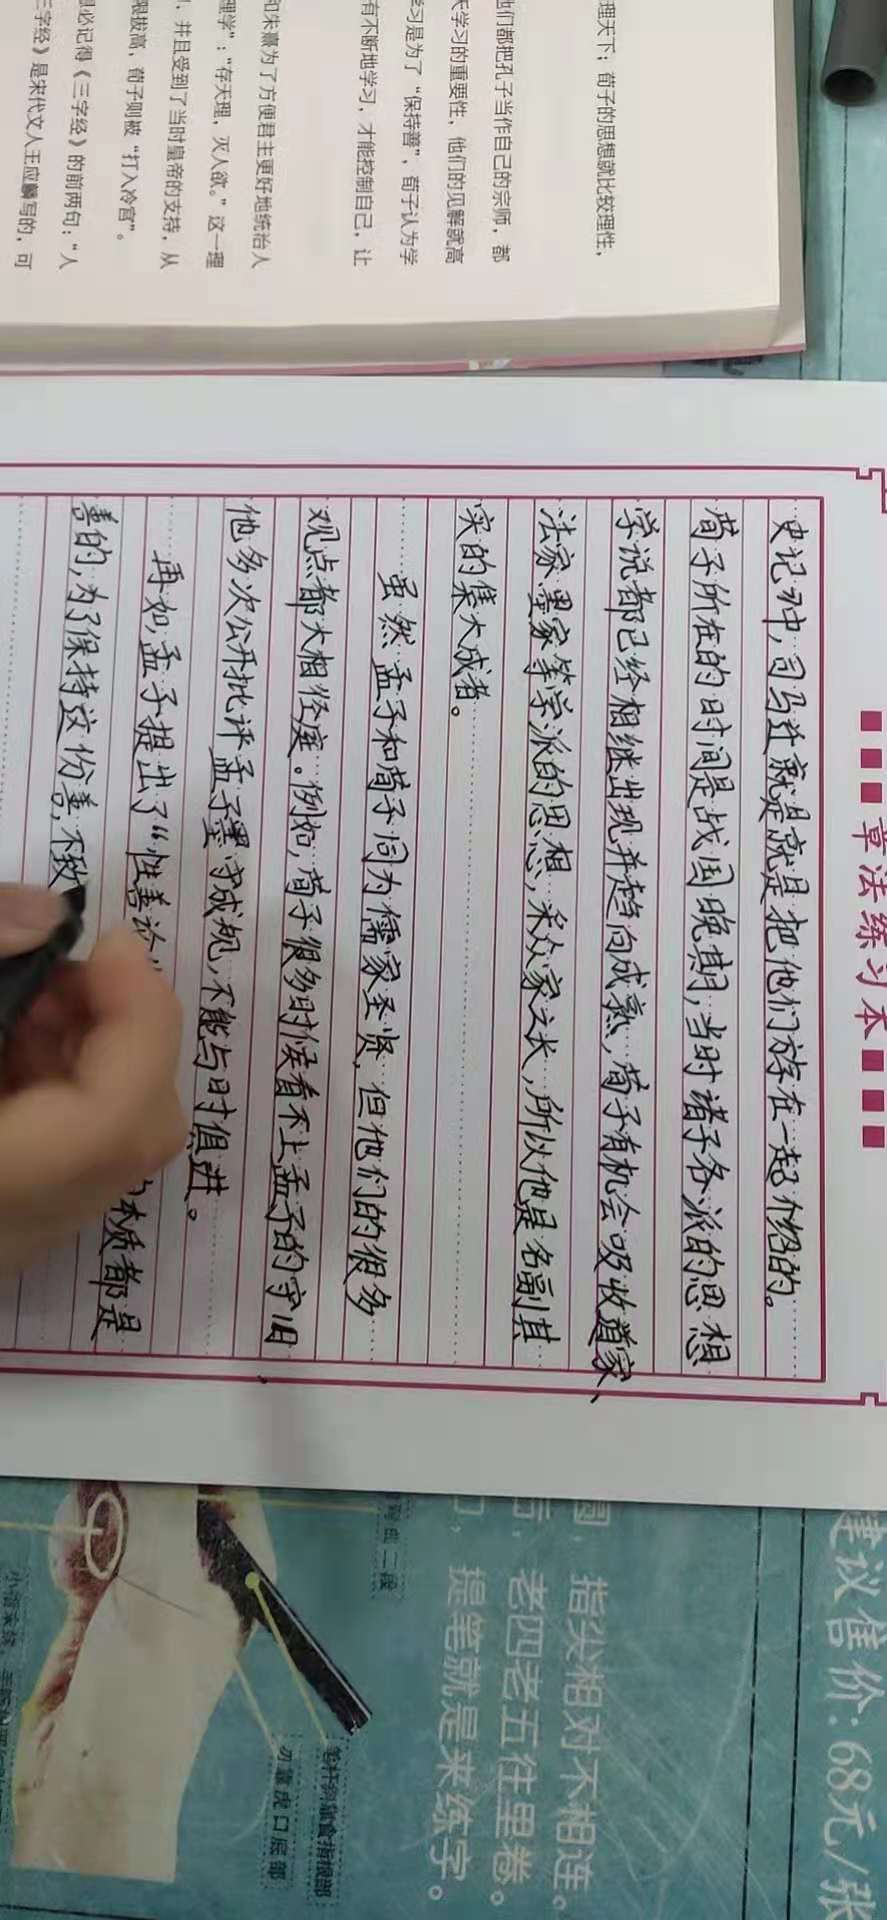 理天下；荀子的思想就比较理性，
他们都把孔子当作自己的宗师，都
天学习的重要性，他们的见解就高
学习是为了“保持善”，荀子认为学
有不断地学习，才能控制自己，让
和朱熹为了方便君主更好地统治人
理学”：“存天理，灭人欲。”这一理
，并且受到了当时皇帝的支持，从
限拔高，荀子则被“打入冷宫”。
想必记得《三字经》的前两句：“人
三字经》是宋代文人王应麟写的，可
章法练习本
史记》中，司马迁就是就是把他们放在一起介绍的。
荀子所在的时间是战国晚期，当时诸子各派的思想
学说都已经相继出现并趋向成熟，荀子有机会吸收道家、
法家、墨家等学派的思想，采众家之长，所以他是名副其
实的集大成者。
虽然孟子和荀子同为儒家圣贤，但他们的很多
观点都大相径庭。例如，荀子很多时候看不上孟子的守旧
他多次公开批评孟子墨守成规，不能与时俱进。
再如，孟子提出了“性善论”
本质都是
善的，为了保持这份善，不致
建议售价：68元/张
指尖相对不相连。
老四老五往里卷。
提笔就是来练字。
笔杆斜靠食指根部
勿靠虎口底部